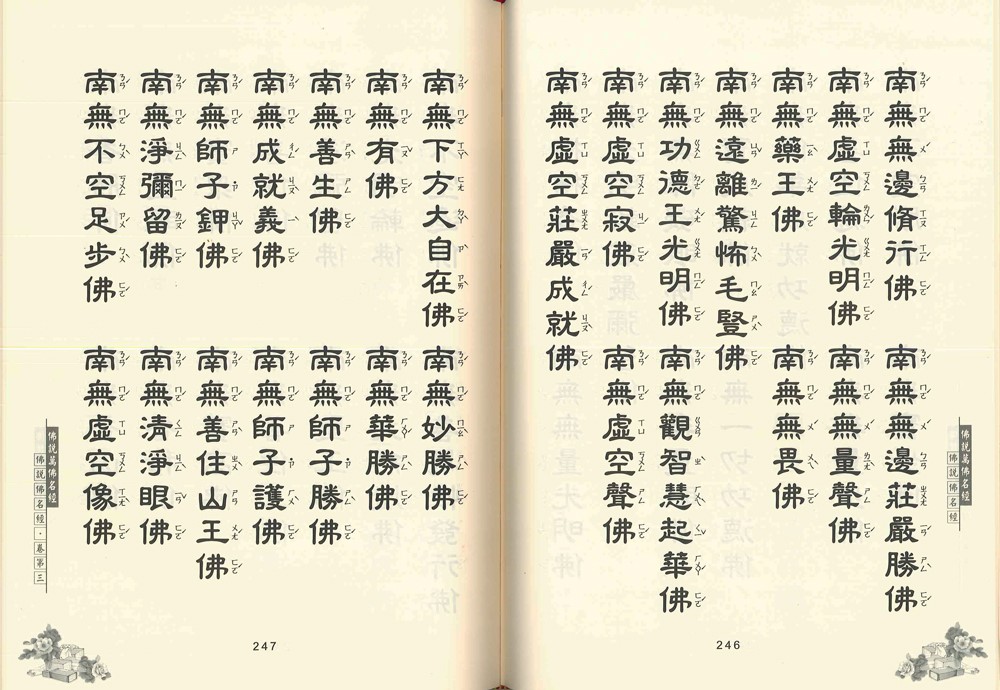 南無無邊脩行佛 南無無邊莊嚴勝佛
南無虛空輪光明佛 南無無量聲佛
南無藥王佛 南無無畏佛
南無遠離驚怖毛豎佛
南無功德王光明佛 南無觀智慧起華佛
南無虛空寂佛 南無虛空聲佛
南無虛空莊嚴成就佛
佛說萬佛名經
佛說佛名經
246
南無下方大自在佛 南無妙勝佛
南無有佛 南無華勝佛
南無善生佛 南無師子勝佛
南無成就義佛 南無師子護佛
南無師子鉀佛 南無善住山王佛
南無淨彌留佛 南無清淨眼佛
南無不空足步佛 南無虛空像佛
佛說萬佛名經
佛說佛名經・卷第三
247